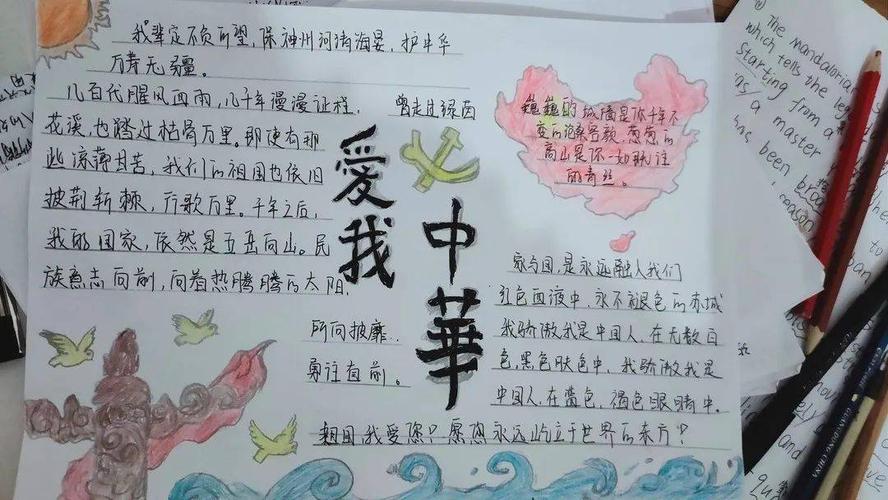 我辈定不负所望,保神州河清海晏,护中华
万寿无疆。
几百代腥风血雨,几千年漫漫征程. 曾走过绿茵
花溪,也踏过枯骨万里。即使有那
些凉薄甘苦,我们的祖国也依旧
披荆斩棘,行歌万里。千年之后,
我那国家,依然是五岳向山。民
族意志向前,向着热腾腾的太阳,
所向披靡.
勇往直前。
愛我
中華
巍巍的城墙是你千年不
变的沧桑容貌,葱葱的
高山是你一如既往
的青丝。
家与国,是永远融入我们
红色血液中,永不褪色的赤城
我骄傲我是中国人,在无数白
色,黑色肤色中,我骄傲我是
中国人,在蓝色,褐色眼睛中.
祖国,我爱您!愿您永远屹立于世界的东方!
The mandalorial
which tells the
starting from
a master
has been
reason
and